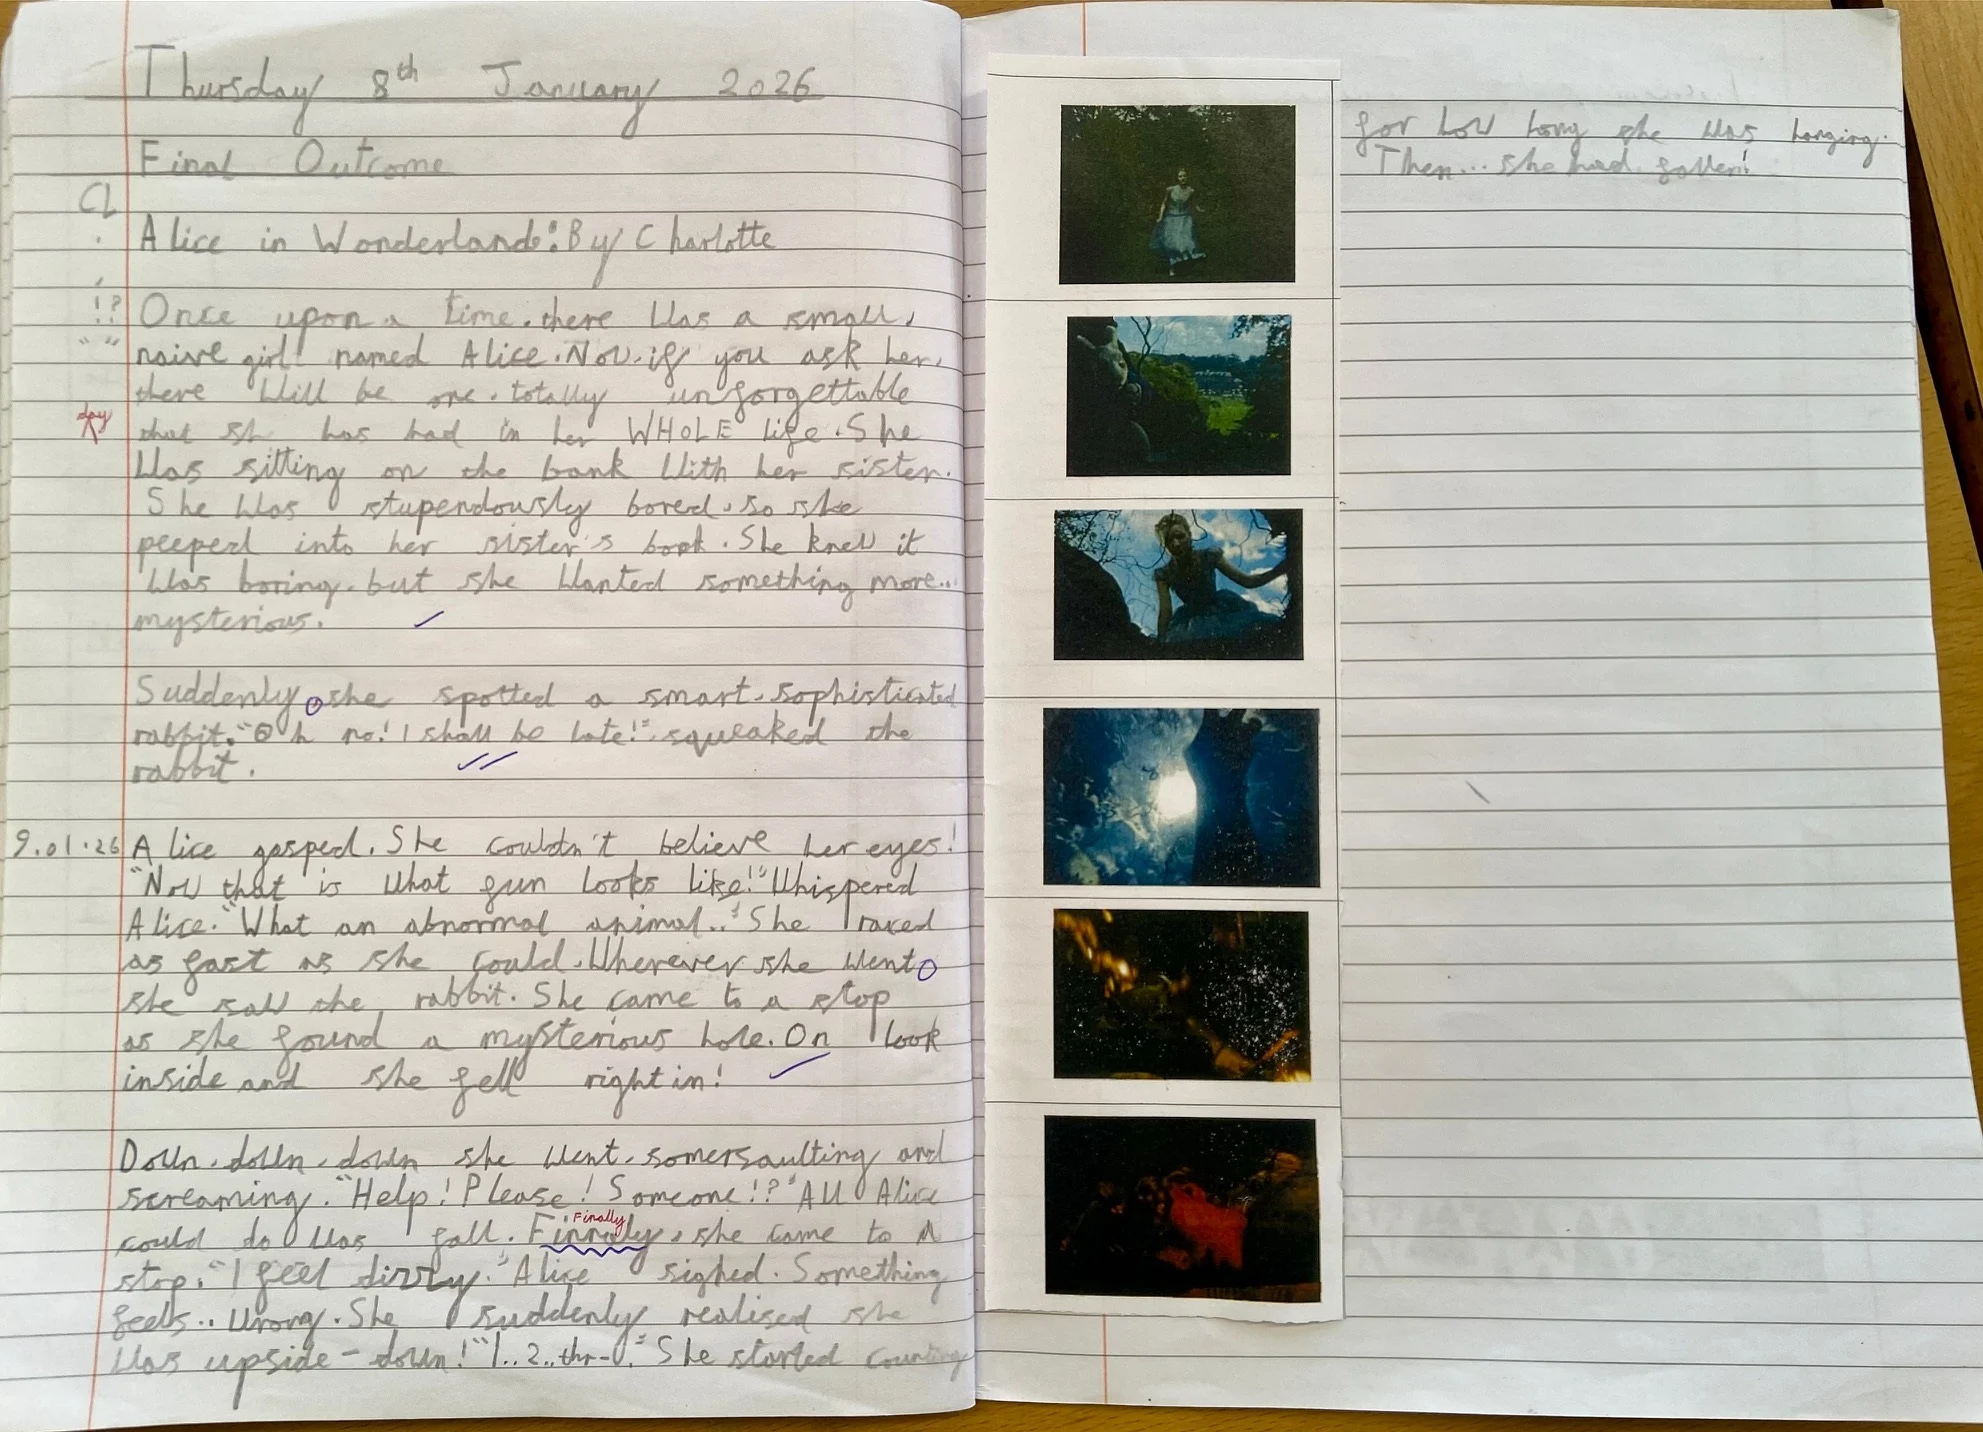 Thursday 8th January 2026
Final Outcome
CL
.
Alice in Wonderland: By Charlotte
,
!? Once upon a time, there was a small,
" " naive girl named Alice. Now, if you ask her,
there will be one, totally unforgettable
day that sh has had in her WHOLE life. She
was sitting on the bank with her sister.
She was stupendously bored, so she
peeped into her sister's book. She knew it
was boring, but she wanted something more...
mysterious.
Suddenly, she spotted a smart, sophisticated
rabbit. "Oh no! I shall be late!" squeaked the
rabbit.
9.01.26 Alice gasped. She couldn't believe her eyes!
"Now that is what fun looks like!" Whispered
Alice. "What an abnormal animal.." She raced
as fast as she could. Wherever she went
she saw the rabbit. She came to a stop
as she found a mysterious hole. On look
inside and she fell right in!
Down, down, down she went, somersaulting and
screaming. "Help! Please! Someone!?" All Alice
could do was fall. Finnaly, she came to a
Finally
stop. "I feel dizzy." Alice sighed. Something
feels.. wrong. She suddenly realised she
was upside-down! "1..2..thr-." She started counting
for how long she was hanging.
Then... she had fallen!